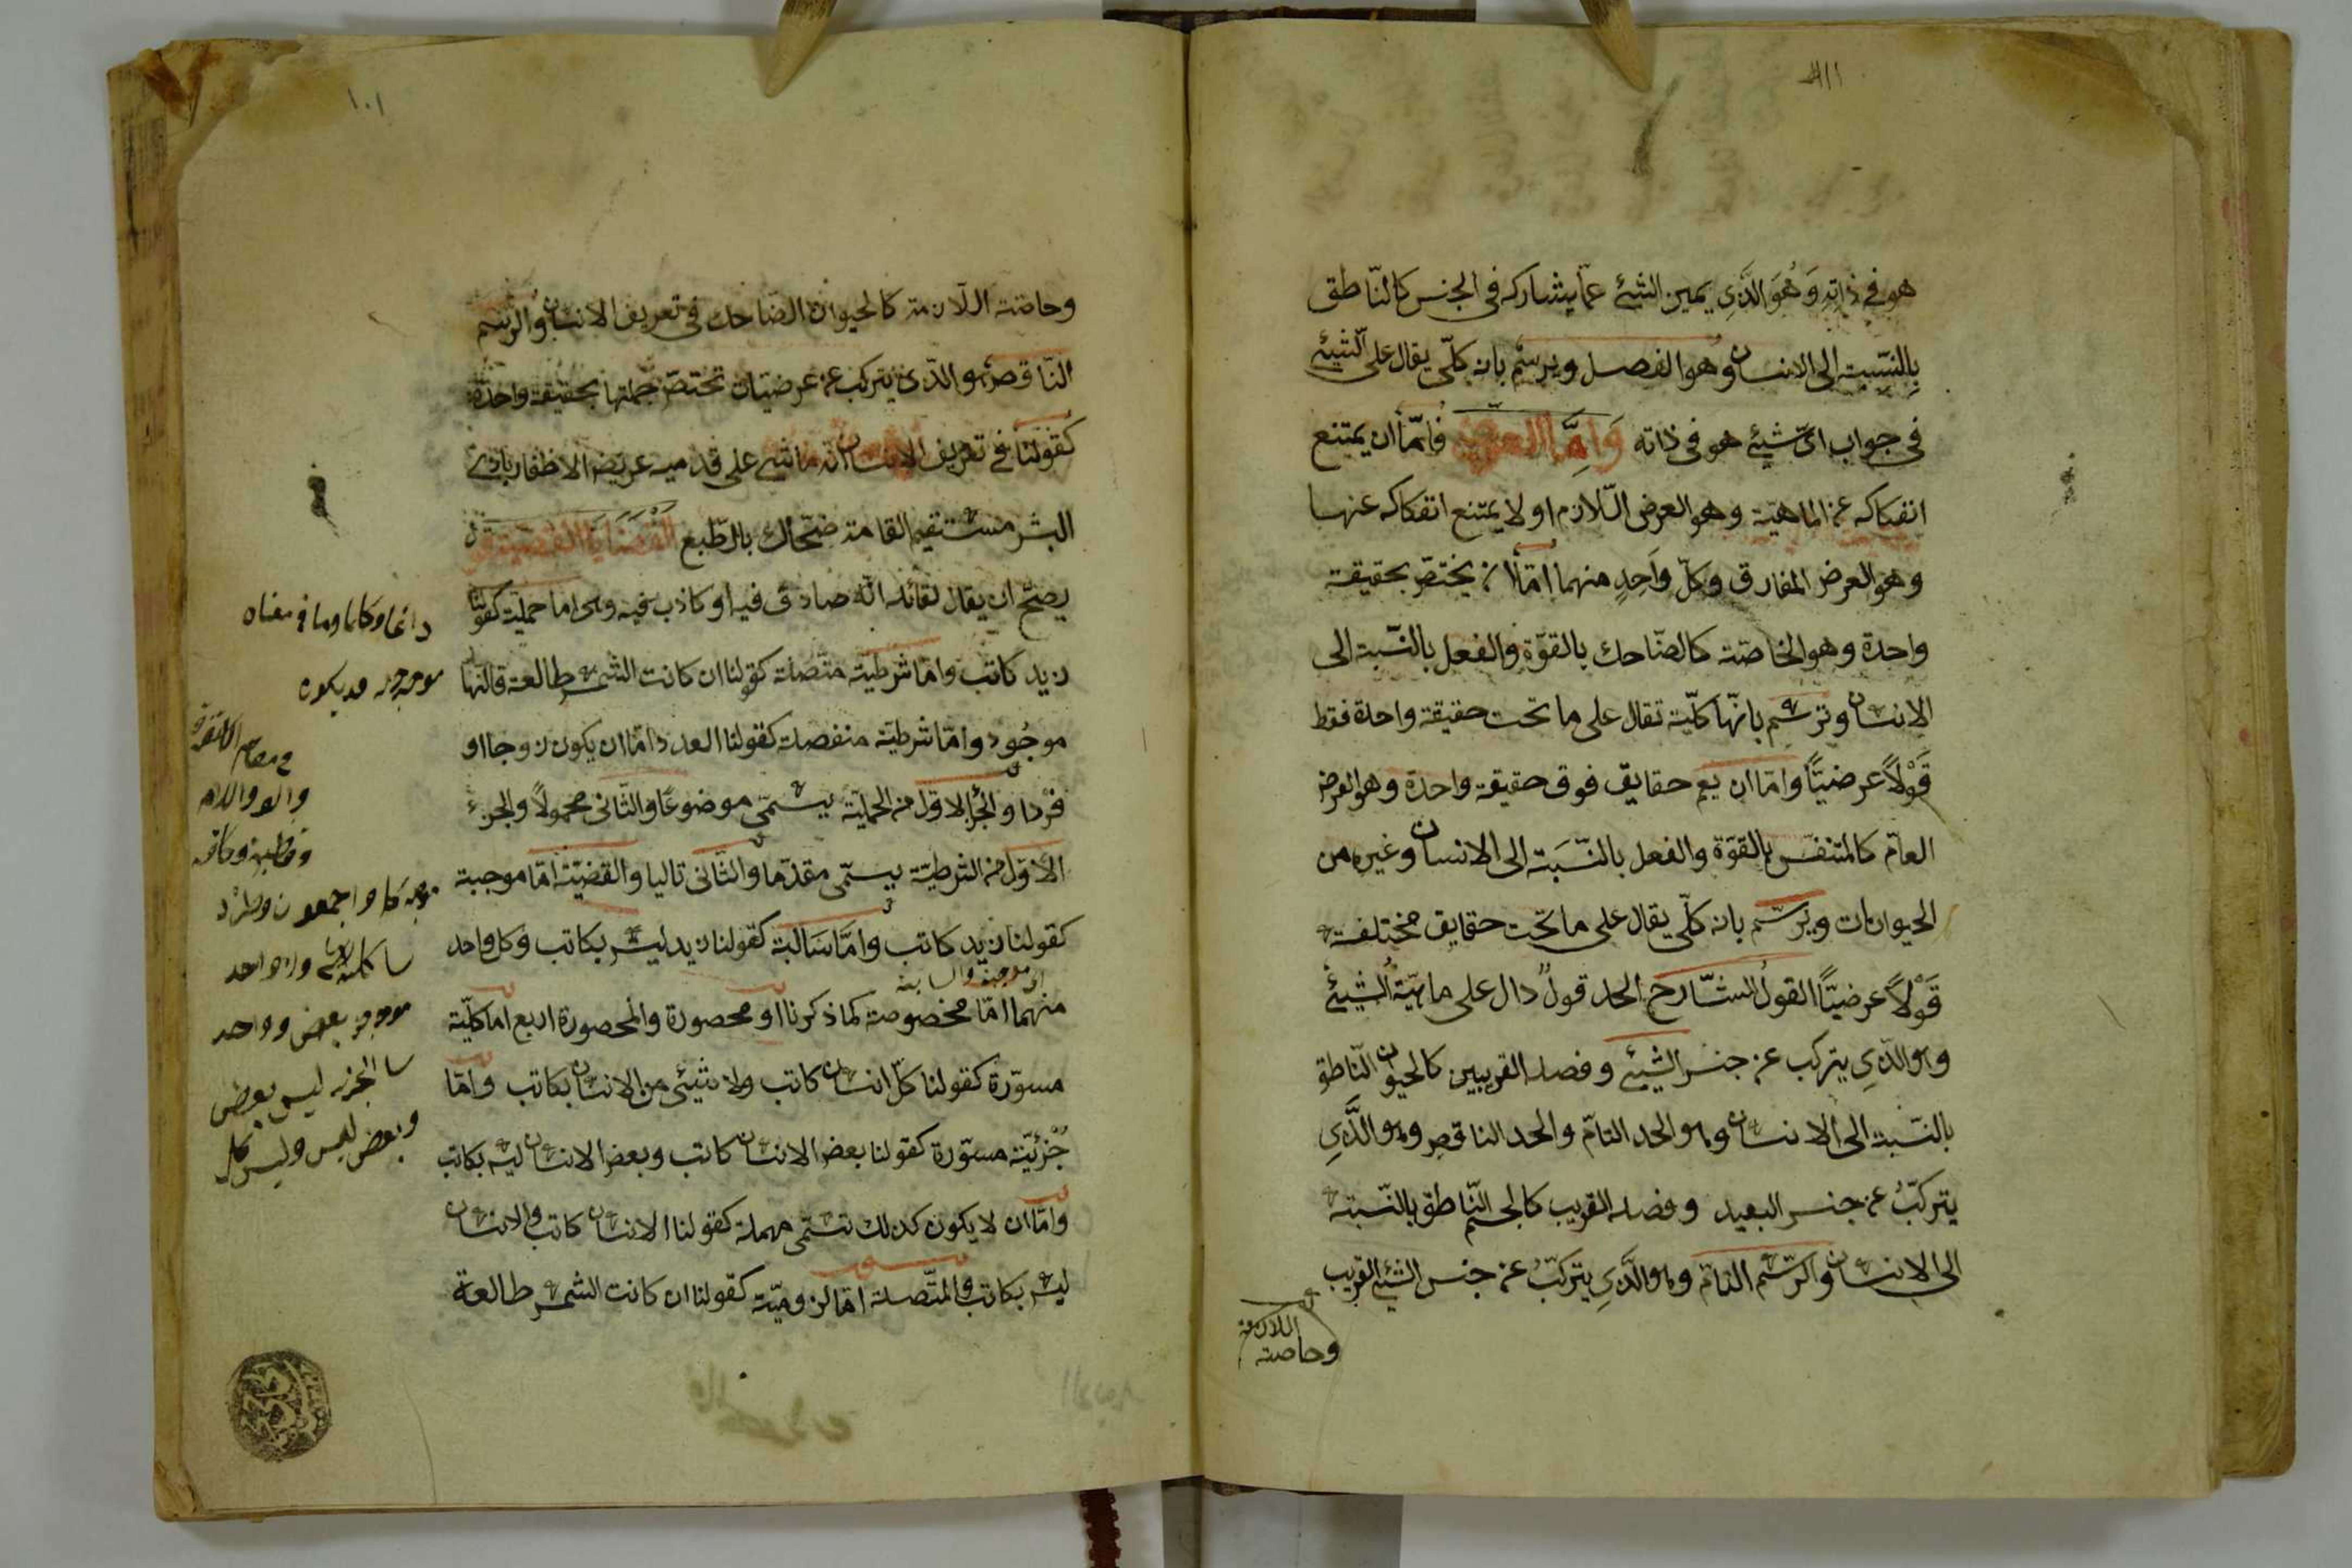 هو في ذاته وَهُوَ الَّذِي يميز الشئ عمّا يشاركه في الجنس كالنّاطق
بِالنّسبة الى الانسان وهو الفصل ويرسم بانه كلّى يقال على الشئ
فى جواب اىّ شيئ هو فى ذاته وَامَّا العرضى فامّا ان يمتنع
انفكاكه عن الماهيّة وهو العرض اللّازم او لا يمتنع انفكاكه عنها
وهو العرض المفارق وكلّ وَاحِدٍ منهما امّا ان يختصّ بحقيقة
واحدة وهو الخاصّة كالضّاحك بالقوّة والفعل بالنّسبة الى
الانسان وترسم بانّها كلّية تقال على ما تحت حقيقة واحدة فقط
قَوْلاً عرضيّاً وامّا ان يعم حقايق فوق حقيقة واحدة وهو العرض
العامّ كالمتنفّس بالقوّة والفعل بالنّسبَة الى الانسان وغيره من
الحيوانات ويرسّم بانه كلّى يقال على ما تحت حقايق مختلفة
قَوْلاً عرضيّاً القولُ الشّارح الحد قولٌ دال على ماهيّة الشيئ
وهو الّذِي يتركب عن جنس الشيئ وفصله القريبين كالحيوان النّاطق
بالنّسبة الى الانسان وهو الحد التامّ والحد الناقص وهو الَّذِي
يتركّبُ عن جنس البعيد وفصله القريب كالجسم النّاطق بالنّسبة
الى الانسان والرّسم التامّ وهو الَّذِي يتركّبُ عن جنس الشيئ القريب
اللازمة
وخاصته
١٠١
وخاصّته اللّازمة كالحيوان الضّاحك فى تعريف الانسان والرّسم
النّاقص وهو الّذى يتركب عن عرضيّات تختصّ جملتها بحقيقة واحدة
كقولنا في تعريف الانسان انّه ماشى على قدميه عريض الاظفار بادى
البشر مستقيم القامة ضحّاك بالطّبع القَضَايَا القضية قول
يصحّ ان يقال لقائله انّه صادق فيه او كاذب فيه وهى اما حملية كقولنا
زيد كاتب وامّا شرطيّة متّصلة كقولنا ان كانت الشمس طالعة فالنهار
موجُود وامّا شرطيّة منفصلة كقولنا العدد امّا ان يكون زوجا او
فرْدا والجُزأ الاوّل من الحمليّة يسمّى موضوعًا والثّانى محمولاً والجزء
الاوّل من الشرطيّة يسمّى مقدّما والثّانى تاليا والقضيّة امّا موجبة
كقولنا زيد كاتب وامَّا سَالبة كقولنا زيد ليس بكاتب وكل واحد
منهما امّا مخصوصة كما ذكرنا او محصورة والمحصورة اربع اما كلّيّة
مسوّرة كقولنا كلّ انسان كاتب ولا شيئى من الانسان بكاتب وامّا
جُزْئيّة مسوّرة كقولنا بعض الانسان كاتب وبعض الانسان ليس بكاتب
وامّا ان لا يكون كذلك تسمّى مهملة كقولنا الانسان كاتب والانسان
ليس بكاتب والمتّصلة امّا لزوميّة كقولنا ان كانت الشمس طالعة
دائما وكلما وما في معناه
قد يكون
بعض وواحد
ليس بعض
وبعض ليس وليس كل